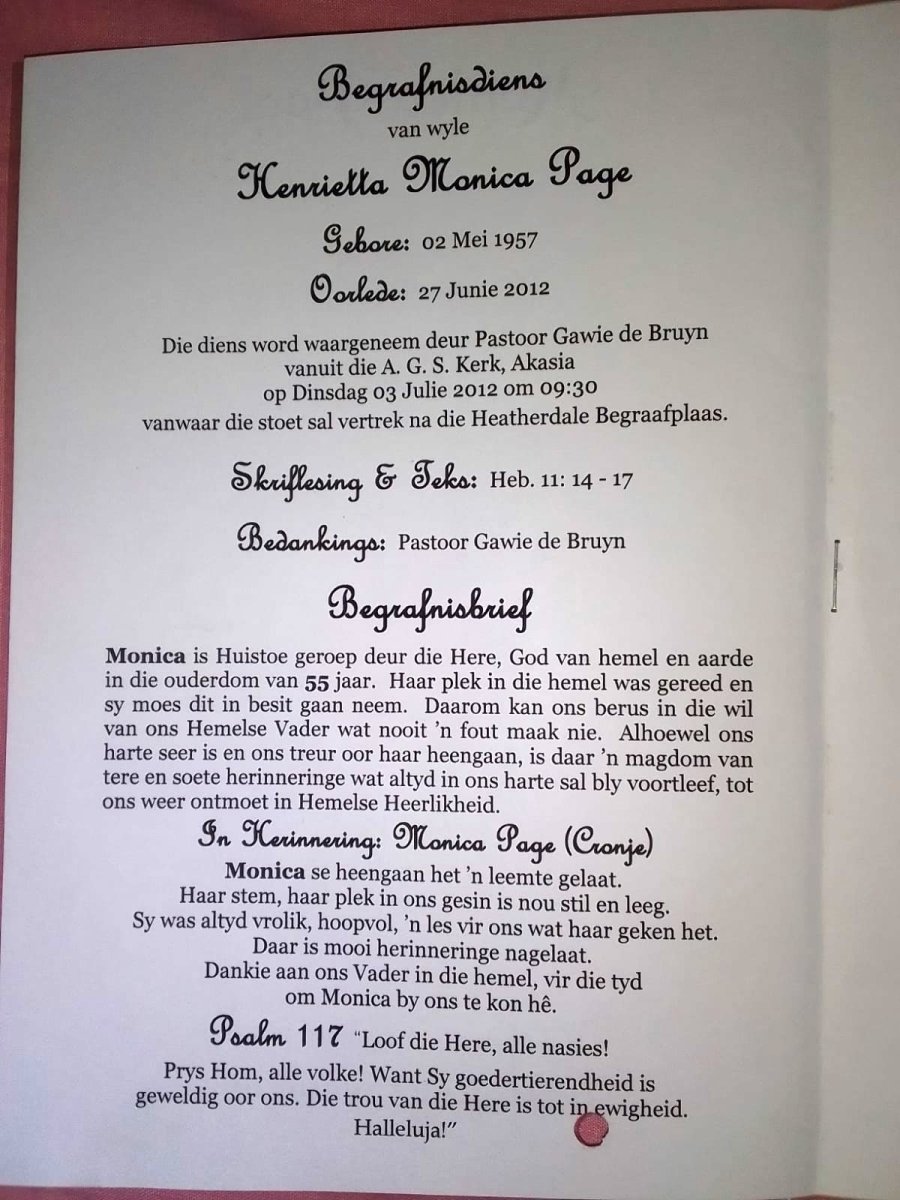 Begrafnisdiens
van wyle
Henrietta Monica Page
Gebore: 02 Mei 1957
Oorlede: 27 Junie 2012
Die diens word waargeneem deur Pastoor Gawie de Bruyn
vanuit die A. G. S. Kerk, Akasia
op Dinsdag 03 Julie 2012 om 09:30
vanwaar die stoet sal vertrek na die Heatherdale Begraafplaas.
Skriflesing & Teks: Heb. 11: 14 - 17
Bedankings: Pastoor Gawie de Bruyn
Begrafnisbrief
Monica is Huistoe geroep deur die Here, God van hemel en aarde
in die ouderdom van 55 jaar. Haar plek in die hemel was gereed en
sy moes dit in besit gaan neem. Daarom kan ons berus in die wil
van ons Hemelse Vader wat nooit ’n fout maak nie. Alhoewel ons
harte seer is en ons treur oor haar heengaan, is daar ’n magdom van
tere en soete herinneringe wat altyd in ons harte sal bly voortleef, tot
ons weer ontmoet in Hemelse Heerlikheid.
In Herinnering: Monica Page (Cronje)
Monica se heengaan het ’n leemte gelaat.
Haar stem, haar plek in ons gesin is nou stil en leeg.
Sy was altyd vrolik, hoopvol, ’n les vir ons wat haar geken het.
Daar is mooi herinneringe nagelaat.
Dankie aan ons Vader in die hemel, vir die tyd
om Monica by ons te kon hê.
Psalm 117 “Loof die Here, alle nasies!
Prys Hom, alle volke! Want Sy goedertierendheid is
geweldig oor ons. Die trou van die Here is tot in ewigheid.
Halleluja!”